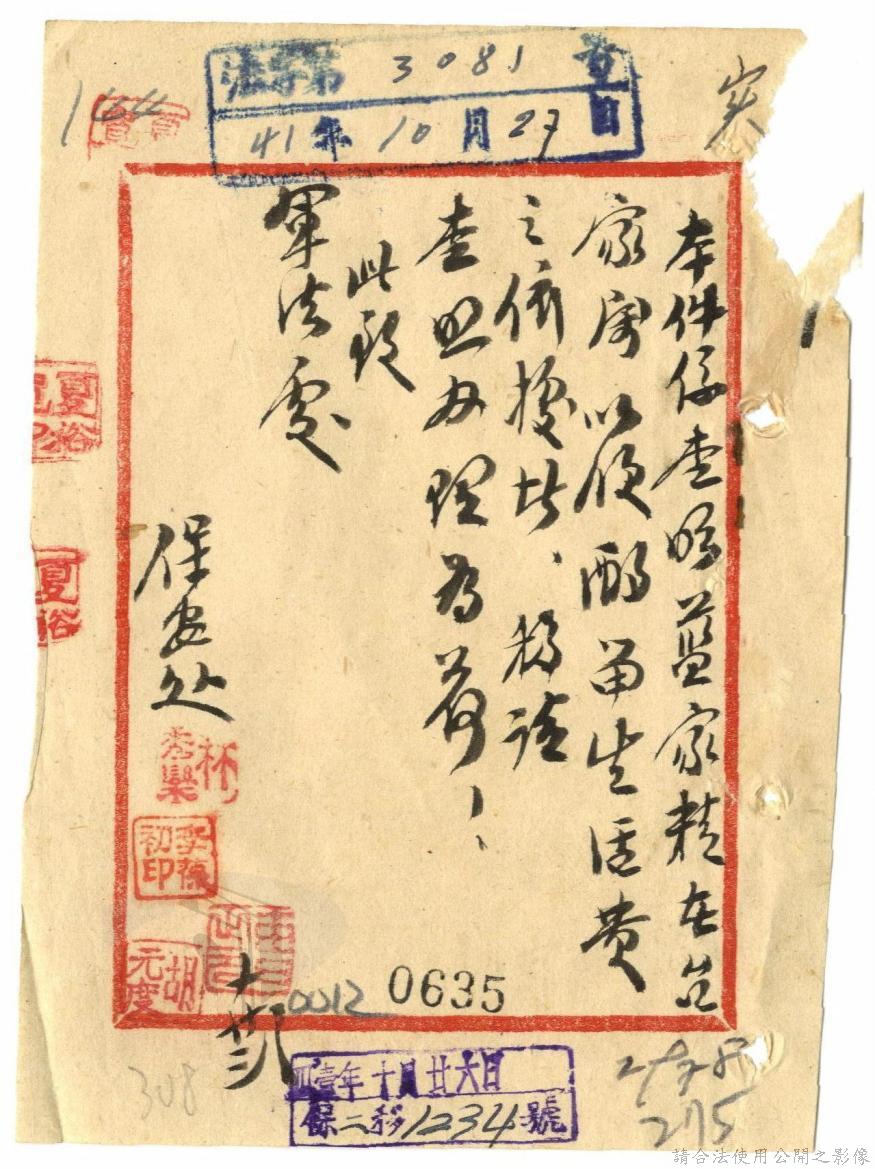 法字第 3081 号
41年 10月 27日
144
本件係查明藍家精在台
家屬以便酌留生活費
之依據此、移請
查照办理為荷、、
此致
軍法處
保安处
胡元度
夏裕
0012
0635
308
肆壹年十月廿六日
保二移1234號
275
請合法使用公開之影像